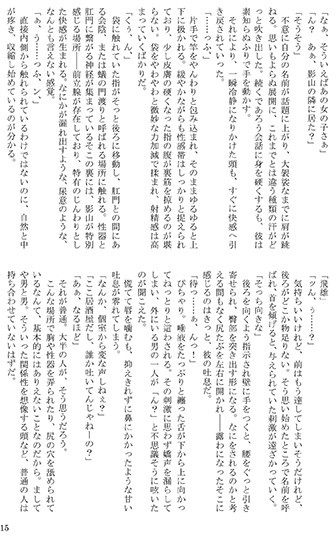 「なぁ、そういえばあの女の子さぁ」
「ん? あぁ、影山の隣に居た?」
「そうそう」
不意に自分の名前が話題に上がり、大袈裟なまでに肩が跳
ねる。思いもよらぬ展開に、これまでとは違う種類の汗がど
っと吹き出した。続くであろう会話に身を硬くするも、彼は
素知らぬふりで手を動かす。
それにより、一瞬冷静になりかけた頭も、すぐに快感へ引
き戻されていった。
「……っふ、」
片手で竿をやんわりと包み込まれ、そのままゆるゆると上
下に扱かれる。緩やかながらも性感帯はしっかりと捉えられ
ており、少し皮膚の硬くなった指の腹が裏筋を掠めるのが堪
らない。袋をやわやわと微妙な力加減で揉まれ、射精感は高
まっていくばかりだ。
「くぅ、ん」
袋に触れていた指がそっと後ろに移動し、肛門との間にあ
る会陰、または蟻の門渡りと呼ばれる場所に触れる。性器と
肛門に繋がる神経が集まっているそこの裏には、影山が特別
感じる場所――前立腺が存在しており、特有のじんわりとし
た快感が生まれる。なにかが漏れ出すような、尿意のような、
なんとも言えない感覚。
「あ、う……っふ、ン、」
直接内側から触れられているわけではないのに、自然と中
が疼き、収縮し始めているのが分かる。
「飛雄」
「ッん、う……?」
気持ちいいけれど、前はもう達してしまいそうだけれど、
後ろがどこか物足りない。そう思い始めたところで名前を呼
ばれ、首を傾げると、与えられていた刺激が遠ざかっていく。
「そっち向きな」
後ろを向くよう指示され壁に手をつくと、腰をぐっと引き
寄せられ、臀部を突き出す形になる。なにをされるのかと考
える間もなく尻たぶを左右に開かれ――露わになったそこに
感じるのはきっと、彼の吐息だ。
「待っ……ぁ、ンっ!」
ぴちゃり。唾液をたっぷりと纏った舌が下から上に向かっ
てねっとりと這わされる。その刺激に思わず嬌声を漏らして
しまい、外にいた男の一人が「ん?」と不思議そうに呟いた
のが聞こえた。
慌てて唇を噛むも、抑えきれずに鼻にかかったような甘い
吐息が零れてしまう。
「なんか、個室から変な声しねぇ?」
「ここ居酒屋だし、誰か吐いてんじゃねーの?」
「あぁ、なるほど」
それが普通。大半の人が、そう思うだろう。
こんな場所で胸や性器を弄られたり、尻の穴を舐められて
いるなんて、基本的にはありえないことなのだから。まして
や男と男、そういった関係性を想像する頭など、普通の人は
持ち合わせていないはずだ。
15